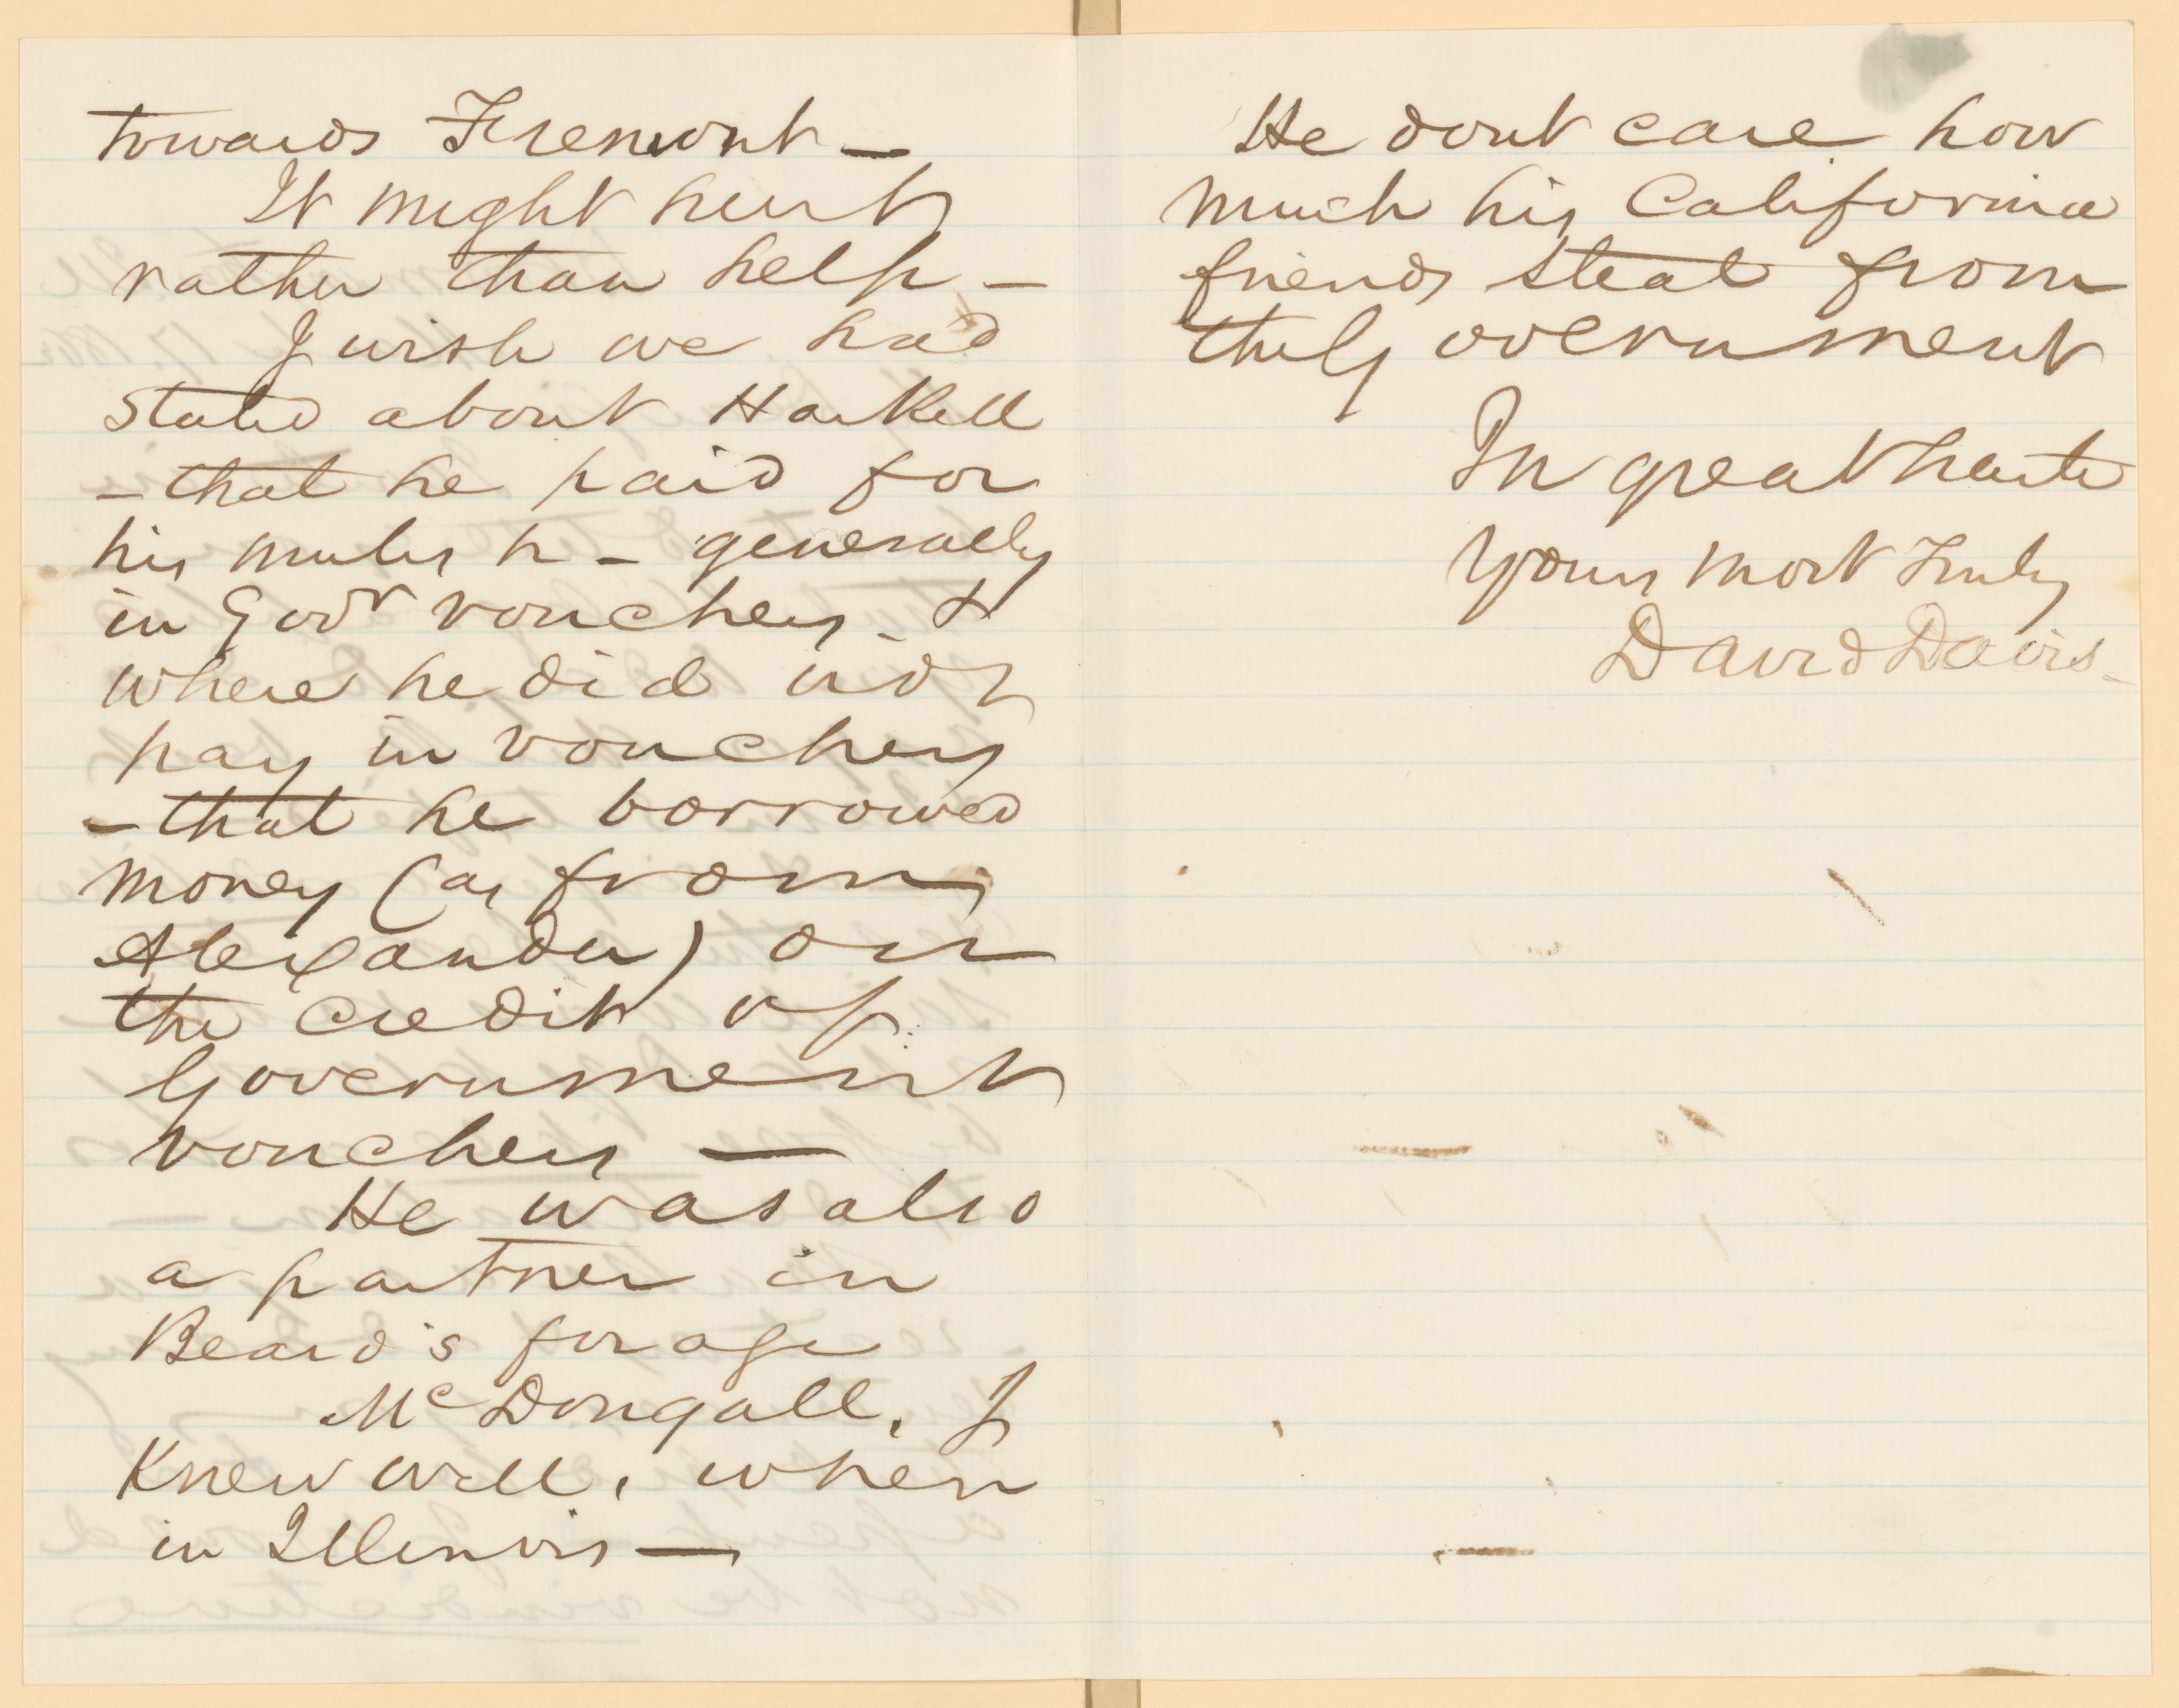 towards Fremont —
It might hurt
rather than help —
I wish we had
stated about Haskell
— that he paid for
his mules h — generally
in Govt vouchers — &
where he did not
pay in vouchers
— that he borrowed
money (as from
Alexander) on
the credit of
Government
vouchers —
He was also
a partner in
Beard's forage
McDougall, I
Knew well, when
in Illinois —
He dont care how
much his California
friends steal from
the Government
In great haste
Yours most Truly
David Davis —